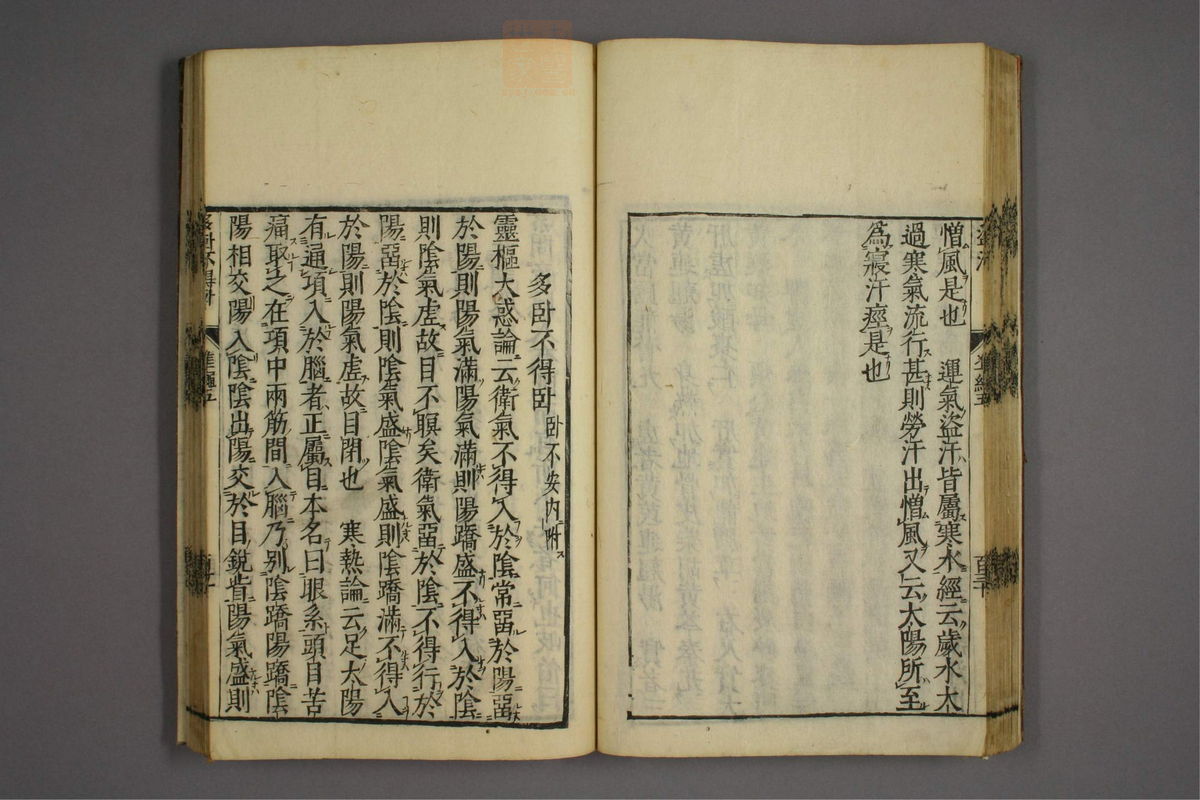 憎風是也　運氣盜汗皆屬寒水經云歲水太
過寒氣流行甚則勞汗出憎風又云太陽所至
為寢汗痙是也
多臥不得臥　臥不安内附
靈樞大惑論云衛氣不得入於陰常畱於陽畱
於陽則陽氣滿陽氣滿則陽蹻盛不得入於陰
則陰氣虛故目不瞑矣衛氣畱於陰不得行於
陽畱於陰則陰氣盛陰氣盛則陰蹻滿不得入
於陽則陽氣虛故目閉也　寒熱論云足太陽
有通項入於腦者正屬目本名曰眼系頭目苦
痛取之在項中兩筋間入腦乃別陰蹻陽蹻陰
陽相交陽入陰陰出陽交於目銳眥陽氣盛則